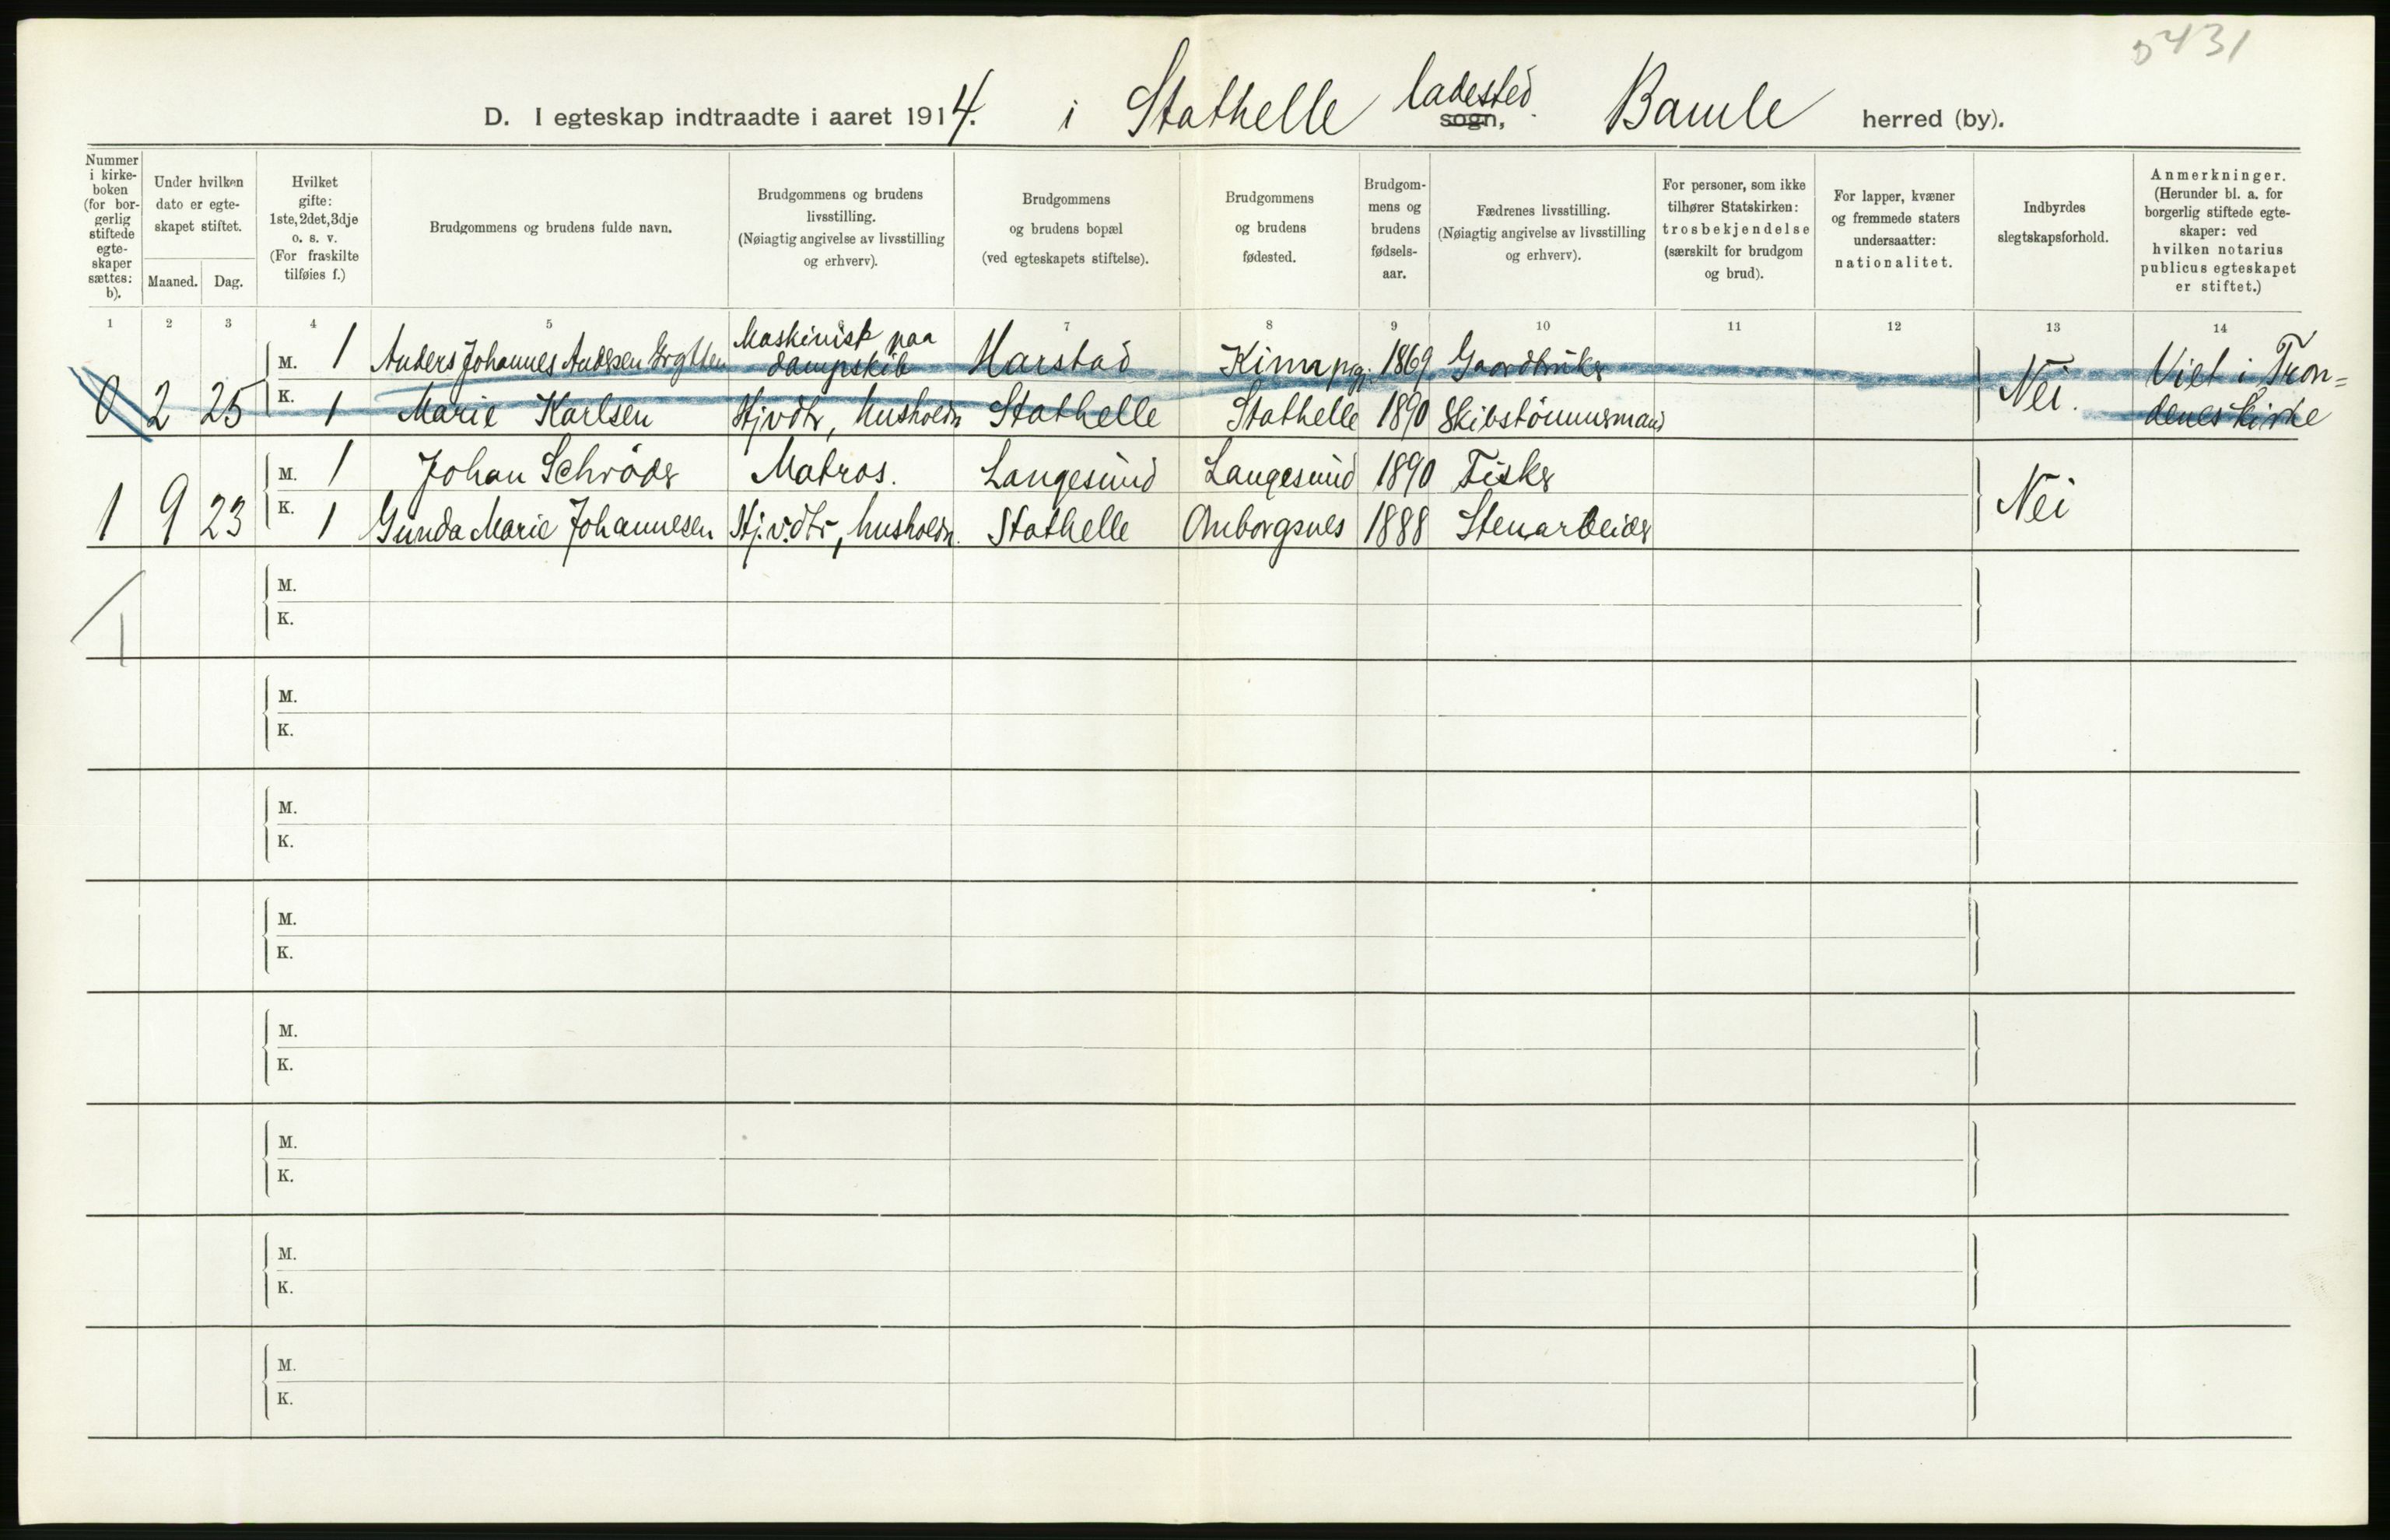 5431
D. I egteskap indtraadte i aaret 1914. i Stathelle ladested. sogn, Bamle herred (by).
Nummer i kirke-boken (for bor-gerlig stiftede egte-skaper sættes: b).
Under hvilken dato er egte-skapet stiftet.
Maaned. Dag.
Hvilket gifte: 1ste, 2det, 3dje o. s. v. (For fraskilte tilføies f.)
Brudgommens og brudens fulde navn.
Brudgommens og brudens livsstilling. (Nøiagtig angivelse av livsstilling og erhverv).
Brudgommens og brudens bopæl (ved egteskapets stiftelse).
Brudgommens og brudens fødested.
Brudgom-mens og brudens fødsels-aar.
Fædrenes livsstilling. (Nøiagtig angivelse av livsstilling og erhverv).
For personer, som ikke tilhører Statskirken: trosbekjendelse (særskilt for brudgom og brud).
For lapper, kvæner og fremmede staters undersaatter: nationalitet.
Indbyrdes slegtskapsforhold.
Anmerkninger. (Herunder bl. a. for borgerlig stiftede egte-skaper: ved hvilken notarius publicus egteskapet er stiftet.)
1 2 3 4 5 6 7 8 9 10 11 12 13 14
M. 1 Anders Johannes Andersen Maskinist paa dampskib Harstad Kinn pgj. 1869 Gaardbruker
0 2 25 K. 1 Marie Karlsen Hj.v. dtr, husholdn Stathelle Stathelle 1890 Skibstømmermand Nei. Viet i Tron=
denes kirke
M. 1 Johan Schrøder Matros. Langesund Langesund 1890 Fisker
1 9 23 K. 1 Gunda Marie Johannesen Hj.v. dtr, husholdn. Stathelle Omborgsnes 1888 Stenarbeider Nei
1
M.
K.
M.
K.
M.
K.
M.
K.
M.
K.
M.
K.
M.
K.
M.
K.